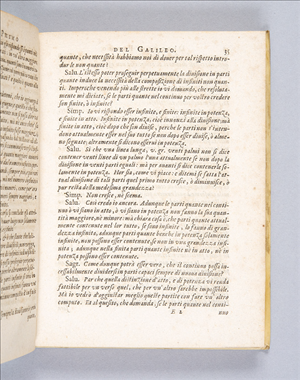 DEL GALILEO. 35
quante, che necessità habbiamo noi di douer per tal rispetto intro-
dur le non quante?
Salu. L'istesso poter proseguir perpetuamente la diuisione in parti
quante induce la necessità della composizione di infiniti non quan-
ti. Imperoche venendo più alle strette io vi domando, che resoluta-
mente mi diciate, se le parti quante nel continuo per vostro credere
son finite, ò infinite?
Simp. Io vi rispondo esser infinite, e finite: infinite in potenza,
e finite in atto. Infinite in potenza, cioè innanzi alla diuisione; mà
finite in atto, cioè dopo che son diuise, perche le parti non s'inten-
dono attualmente esser nel suo tutto se non dopo esser diuise, ò alme-
no segnate; altramente si dicono esserui in potenza.
Salu. Si che vna linea lunga, v. gr. venti palmi non si dice
contener venti linee di vn palmo l'vna attualmente se non dopo la
diuisione in venti parti eguali: mà per auanti si dice contenerle so-
lamente in potenza. Hor sia, come vi piace: e ditemi se fatta l'at-
tual diuisione di tali parti quel primo tutto cresce, ò diminuisce, ò
pur resta della medesima grandezza?
Simp. Non cresce, nè scema.
Salu. Così credo io ancora. Adunque le parti quante nel conti-
nuo ò vi siano in atto, ò vi siano in potenza non fanno la sua quan-
tità maggiore, nè minore: mà chiara cosa è, che parti quante attual-
mente contenute nel lor tutto, se sono infinite, lo fanno di gran-
dezza infinita, adunque parti quante benche in potenza solamente
infinite, non possono esser contenute, se non in vna grandezza in-
finita; adunque nella finita parti quante infinite nè in atto, nè in
potenza possono esser contenute.
Sagr. Come dunque potrà esser vero, che il continuo possa in-
cessabilmente diuidersi in parti capaci sempre di nuoua diuisione?
Salu. Par che quella distinzione d'atto, e di potenza vi renda
fattibile per vn verso quel, che per vn'altro sarebbe impossibile.
Mà io vedrò d'aggiustar meglio queste partite con fare vn'altro
computo. Et al quesito, che domanda; se le parti quante nel conti-
E 2 nuo